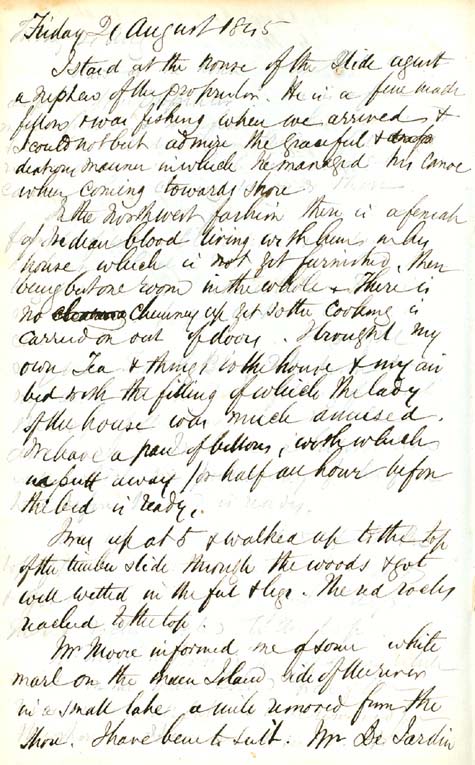 Friday 2 August 1845
I staid at the house of the Slide agent
a nephew of the proprietor. He is a fine made
fellow & was fishing when we arrived &
I could not but admire the graceful &
manner in which he managed his Canoe
when coming towards shore
In the Northwest fashion there is a female
of Indian blood living with him in his
house which is not yet furnished, there
being but one room in the whole & There is
no Chimney up yet so the cooking is
carried on out of doors. I brought my
own Tea & things to the house & my air
bed with the filling of which the lady
of the house was much amused.
We have a pair of bellows, with which
puff away for half an hour before
the bed is ready.
I was up at 5 & walked up to the top
of the timber slide through the woods & got
well wetted in the feet & legs. The red rocks
reached to the top.
Mr Moore informed me of some white
marl on the main Island side of the river
in a small lake a mile removed from the
shore. I have been to see it. Mr De Jardin